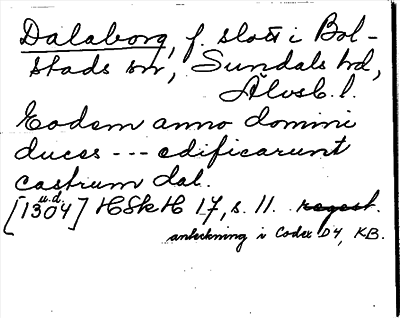 Dalaborg, f. slott i Bol-
stads sn, Sundals hd,
Älvsb. l.
Eodem anno domini
duces --- edificarunt
castrum dal.
[1304] u.d. HSkH 17, s. 11. regest.
anteckning i Codex D4, KB.